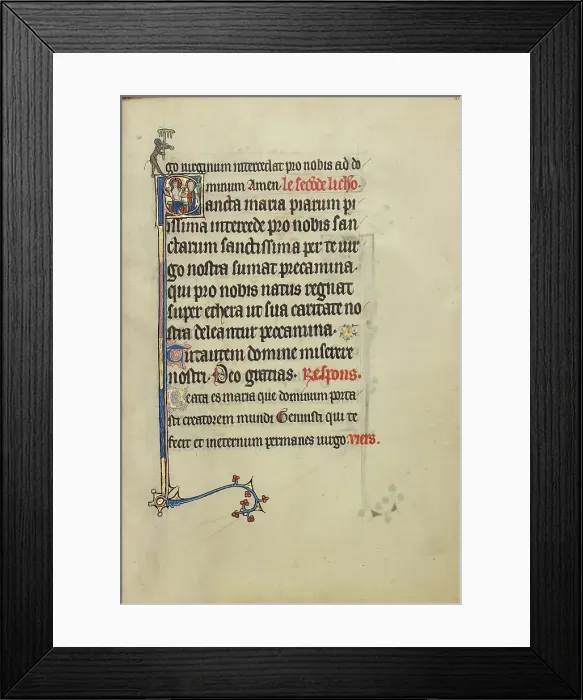 go virginum intercedat pro nobis ad do
minum Amen. le secõde licho.
Sancta maria piarum pi
issima intercede pro nobis san
ctarum sanctissima per te vir
go nostra sumat precamina.
qui pro nobis natus regnat
super ethera ut sua caritate no
stra deleantur peccamina.
Tu autem domine miserere
nostri. Deo gratias. Respons.
Beata es maria que dominum porta
sti creatorem mundi Genuisti qui te
fecit et ineternum permanes virgo. vers.